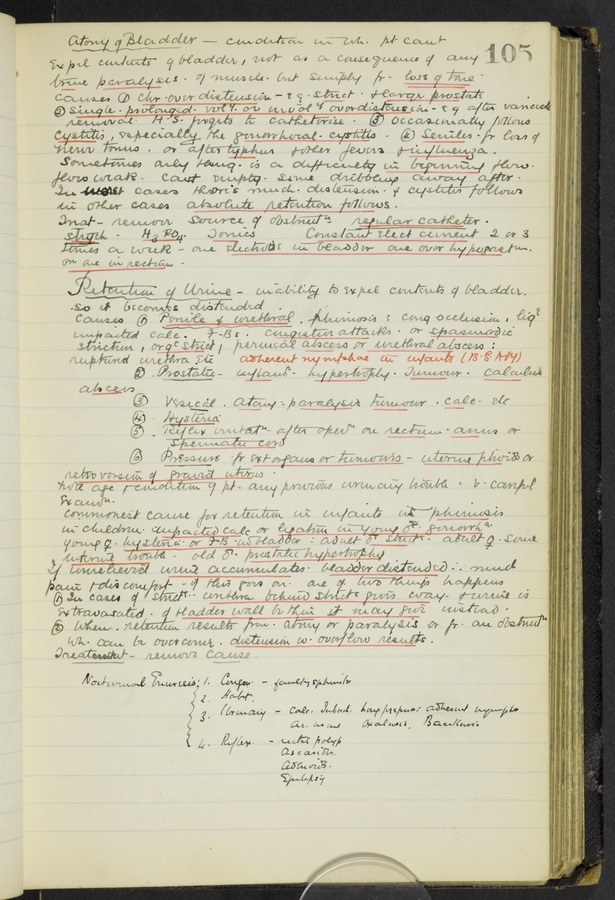 105
Atony of Bladder — condition in wh. pt cant
expel contents of bladder, not as a consequence of any
true paralysis of muscle but simply fr. loss of tone.
Causes ① chr. over distension - e.g. strict. & large prostate
② Single prolonged vol.y or invol.y overdistension - e.g after varicocele
removal H.S. forgets to catheterise. ③ occasionally follows
cystitis, especially the gonorrhoeal cystitis. ④ Seniles fr loss of
nerve tonus. or after typhus & other fevers & influenza.
Sometimes only thing is a difficulty in beginning flow.
flow weak. cant empty. Some dribbling away after.
In worst cases there's much distension & cystitis follows
in other cases absolute retention follows.
Treat - remove source of obstruct.n regular catheter.
Strych. H3PO4 Tonics Constant Elect current 2 or 3
times a week - one electrode in bladder one over hypogastm.
or one in rectum.
Retention of Urine - inability to expel contents of bladder.
so it becomes distended.
Causes ① Penile & urethral. phimosis: cong occlusion, lig.e
impacted calc. F.Bs. congestive attacks. or spasmodic
stricture, org.c strict, perineal abscess or urethral abscess:
ruptured urethra etc adherent nymphae in infants (B.G.A.M)
② Prostatic - inflam.n hypertrophy. Tumour. calculus
abscess
③ Vesical. Atony - paralysis tumour. calc. etc
④ Hysteria
⑤ Reflex irritat.n - after oper.n on rectum. anus. or
Spermatic cord
⑥ Pressure fr ext organs or tumours - uterine fibroids or
retroversion of gravid uterus.
Note age & condition of pt. any previous urinary trouble. & v. careful
Exam.n
Commonest cause for retention in infants is phimosis
in children impacted calc or ligation in young ♂ gonorrh.a
young ♀ hysteria or F.B. in bladder: adult ♂ strict. adult ♀ some
uterine trouble. old ♂ prostatic hypertrophy
If unrelieved urine accumulates. bladder distended ∴ much
pain & discomfort - if this goes on one of two things happens
① In cases of strict. urethra behind strict. gives way & urine is
Extravasated. if bladder wall be thin it may give instead.
② When retention results from atony or paralysis or fr. an obstruct.n
wh. can be overcome. distension w. overflow results.
Treatment - remove cause.
Nocturnal Enuresis; 1. Congen - faulty sphincter
2. Habit.
3. Urinary - calc. long prepuce: adherent nympha
ac. urine oxaluria, Bacilluria
4. Reflex. - rectal polyp
Ascarides.
Adenoids.
Epilepsy